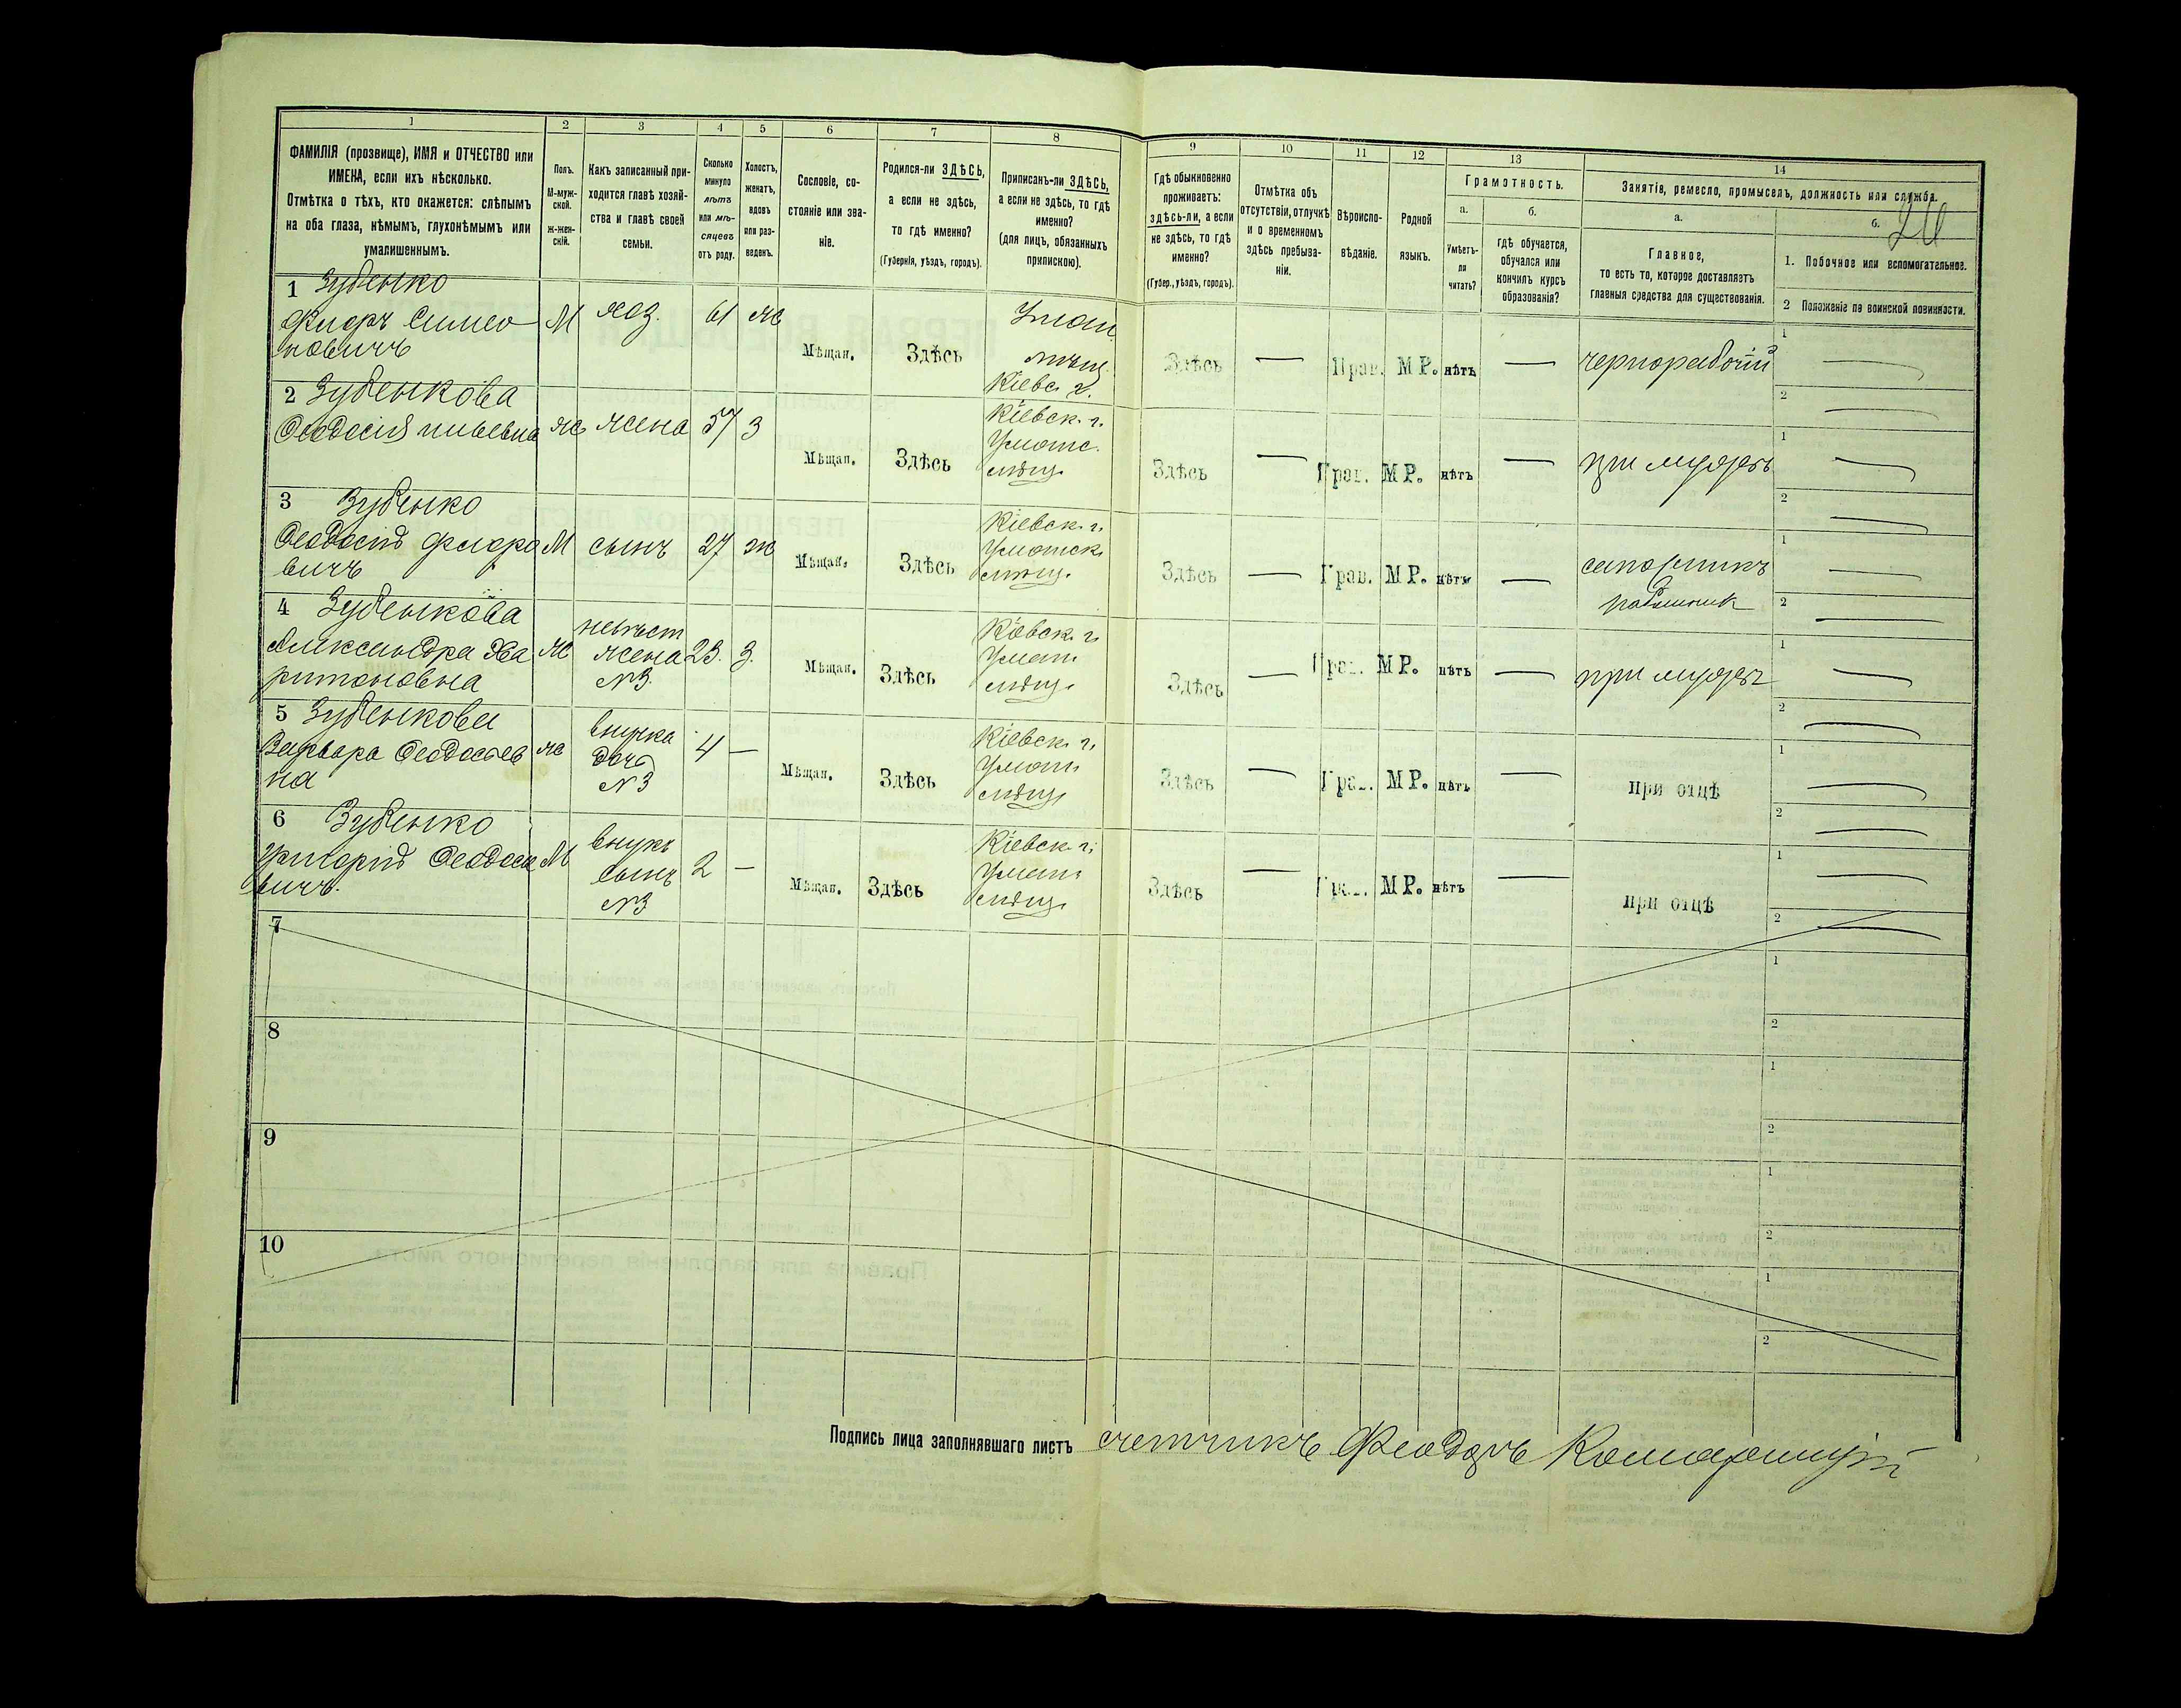 1 2 3 4 5 6 7 8 9 10 11 12 13 14
ФАМИЛІЯ (прозвище), ИМЯ и ОТЧЕСТВО или
ИМЕНА, если ихъ нѣсколько.
Отмѣтка о тѣхъ, кто окажется: слѣпымъ
на оба глаза, нѣмымъ, глухонѣмымъ или
умалишеннымъ.
Полъ.
М-муж-
ской.
ж-жен-
скій.
Какъ записанный при-
ходится главѣ хозяй-
ства и главѣ своей
семьи.
Сколько
минуло
лѣтъ
или мѣ-
сяцевъ
отъ роду.
Холостъ,
женатъ,
вдовъ
или раз-
веденъ.
Сословіе, со-
стояніе или зва-
ніе.
Родился-ли ЗДѢСЬ,
а если не здѣсь,
то гдѣ именно?
(Губернія, уѣздъ, городъ).
Приписанъ-ли ЗДѢСЬ,
а если не здѣсь, то гдѣ
именно?
(для лицъ, обязанныхъ
припискою).
Гдѣ обыкновенно
проживаетъ:
здѣсь-ли, а если
не здѣсь, то гдѣ
именно?
(Губер., уѣздъ, городъ).
Отмѣтка объ
отсутствіи, отлучкѣ
и о временномъ
здѣсь пребыва-
ніи.
Вѣроиспо-
вѣданіе.
Родной
языкъ.
Грамотность.
а.
Умѣетъ-
ли
читать?
б.
гдѣ обучается,
обучался или
кончилъ курсъ
образованія?
Занятія, ремесло, промыселъ, должность или служба.
а.
Главное,
то есть то, которое доставляетъ
главныя средства для существованія.
б.
1. Побочное или вспомогательное.
2 Положеніе по воинской повинности.
1 Зубенко
Флоръ Симео
новичъ
М хоз. 61 ж Мѣщан. Здѣсь
Уман.
мѣщ.
Кіевс. г.
Здѣсь — Прав. МР. нѣтъ — чернорабочій
1
2
2 Зубенкова
Ѳеодосія
ж жена 57 З Мѣщан. Здѣсь
Кіевск. г.
Уманс.
мѣщ.
Здѣсь — Прав. МР. нѣтъ — при мужѣ
1
2
3 Зубенко
Ѳеодосій Флоро
вичъ
М сынъ 27 ж Мѣщан. Здѣсь
Кіевск. г.
Уманск.
мѣщ.
Здѣсь — Прав. МР. нѣтъ — сапожникъ
1
2
4 Зубенкова
Александра Ха
ритоновна
ж
невѣст
жена
№3.
23. З. Мѣщан. Здѣсь
Кіевск. г.
Уман.
мѣщ.
Здѣсь — Прав. МР. нѣтъ — при мужѣ
1
2
5 Зубенкова
Варвара Ѳеодосьев
на
ж
внучка
дочь
№3
4 — Мѣщан. Здѣсь
Кіевск. г.
Уман.
мѣщ.
Здѣсь — Прав. МР. нѣтъ — при отцѣ
1
2
6 Зубенко
Григорій Ѳеодосе
вичъ.
М
внукъ
сынъ
№3
2 — Мѣщан. Здѣсь
Кіевск. г.
Уман.
мѣщ.
Здѣсь — Прав. МР. нѣтъ — при отцѣ
1
2
7
1
2
8
1
2
9
1
2
10
1
2
Подпись лица заполнявшаго листъ счетчикъ Ѳеодоръ